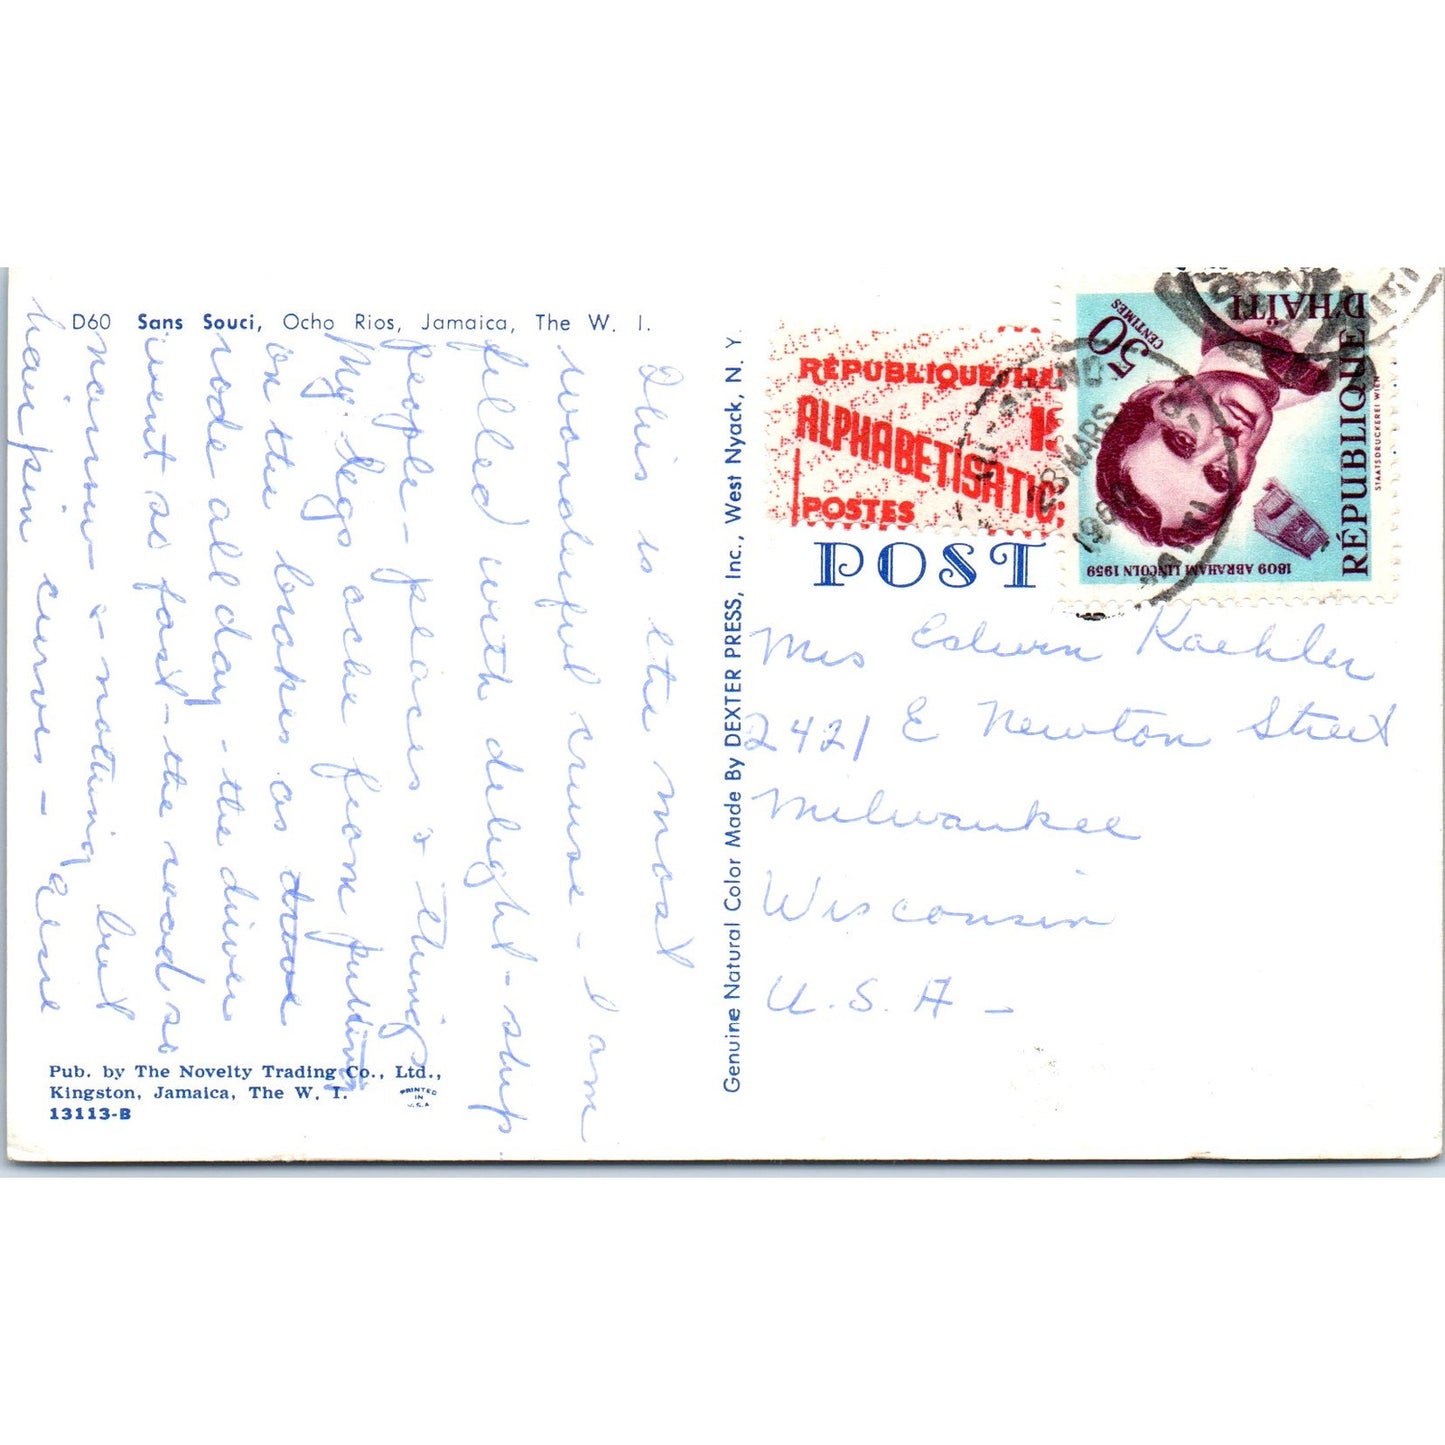 D60 Sans Souci, Ocho Rios, Jamaica, The W. I.
This is the most
wonderful cruise - I am
filled with delight - ship
people - places & things
My legs ache from putting
on the brakes as drove
rode all day - the driver
went so fast - the road so
narrow - & nothing but
hairpin curves -
Pub. by The Novelty Trading Co., Ltd.,
Kingston, Jamaica, The W. I.
13113-B
PRINTED
IN
U.S.A.
Genuine Natural Color Made By DEXTER PRESS, Inc., West Nyack, N. Y.
RÉPUBLIQUE
ALPHABETISATIO
POSTES
RÉPUBLIQUE D'HAÏTI
50 CENTIMES
1809 ABRAHAM LINCOLN 1959
STAATSDRUCKEREI WIEN
MARS
POST
Mrs Edwin Raehler
2421 E Newton Street
Milwaukee
Wisconsin
U.S.A -